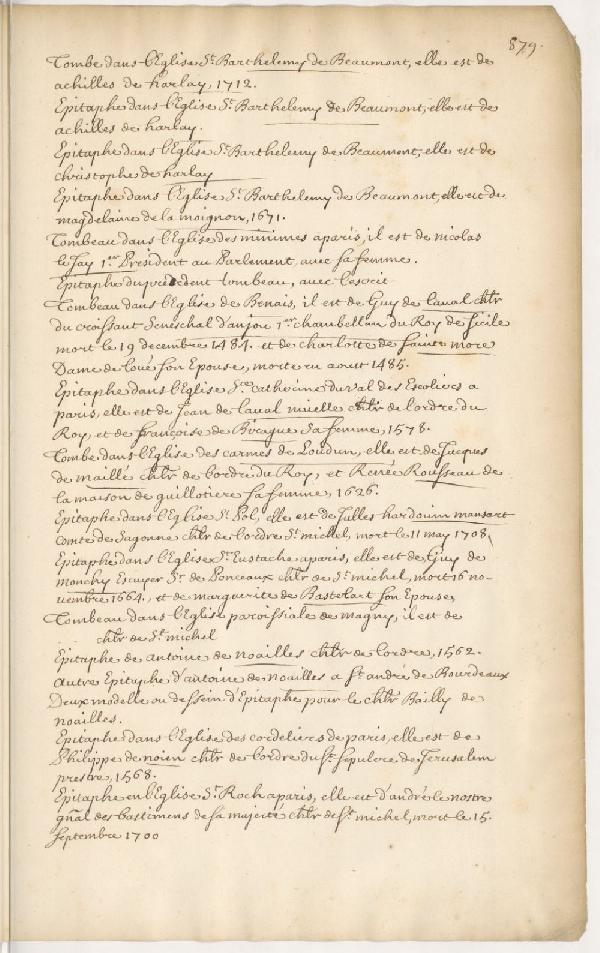 879.
Tombe dans l'Eglise St. Barthelemy de Beaumont, elle est de
achilles de harlay, 1712.
Epitaphe dans l'Eglise St. Barthelemy de Beaumont, elle est de
achilles de harlay.
Epitaphe dans l'Eglise St. Barthelemy de Beaumont, elle est de
christophe de harlay
Epitaphe dans l'Eglise St. Barthelemy de Beaumont, elle est de
magdelaine de la moignon, 1671.
Tombeau dans l'Eglise des minimes a paris, il est de nicolas
le Jay 1er President au Parlement, avec sa femme.
Epitaphe du precedent tombeau, avec l'escrit
Tombeau dans l'Eglise de Benais, il est de Guy de laval chlr
du croissant Seneschal d'anjou 1er chambellan du Roy de sicile
mort le 19 decembre 1484. et de charlotte de sainte more
Dame de loué son Epouse, morte en aoust 1485.
Epitaphe dans l'Eglise Ste catherine du val des Escoliers a
paris, elle est de Jean de laval nuelle chlr de l'ordre du
Roy, et de françoise de Birague sa femme, 1578.
Tombe dans l'Eglise des carmes de Loudun, elle est de Jacques
de maillé chlr de l'ordre du Roy, et Renée Rousseau de
la maison de guillotiere sa femme, 1626.
Epitaphe dans l'Eglise St. Pol, elle est de Julles hardouin mansart
comte de Sagonne chlr de l'ordre St. michel, mort le 11 may 1708,
Epitaphe dans l'Eglise St. Eustache a paris, elle est de Guy de
monchy Escuyer Sr. de Ponceaux chlr de St. michel, mort 16 no-
uembre 1664, et de marguerite de son Epouse,
Tombeau dans l'Eglise paroissiale de magny, il est de
chlr de St. michel
Epitaphe de antoine de noailles chlr de l'ordre, 1562.
autre Epitaphe d'antoine de noailles a St. andré de Bourdeaux
Deux modelle ou dessein d'Epitaphe pour le chlr Bailly de
noailles.
Epitaphe dans l'Eglise des cordeliers de paris, elle est de
Philippe de noien chlr de l'ordre du St. sepulcre de Jerusalem
prestre, 1568.
Epitaphe en l'Eglise St. Roch a paris, elle est d'andré le nostre
gnal des bastimens de sa majesté chlr de St. michel, mort le 15.
septembre 1700